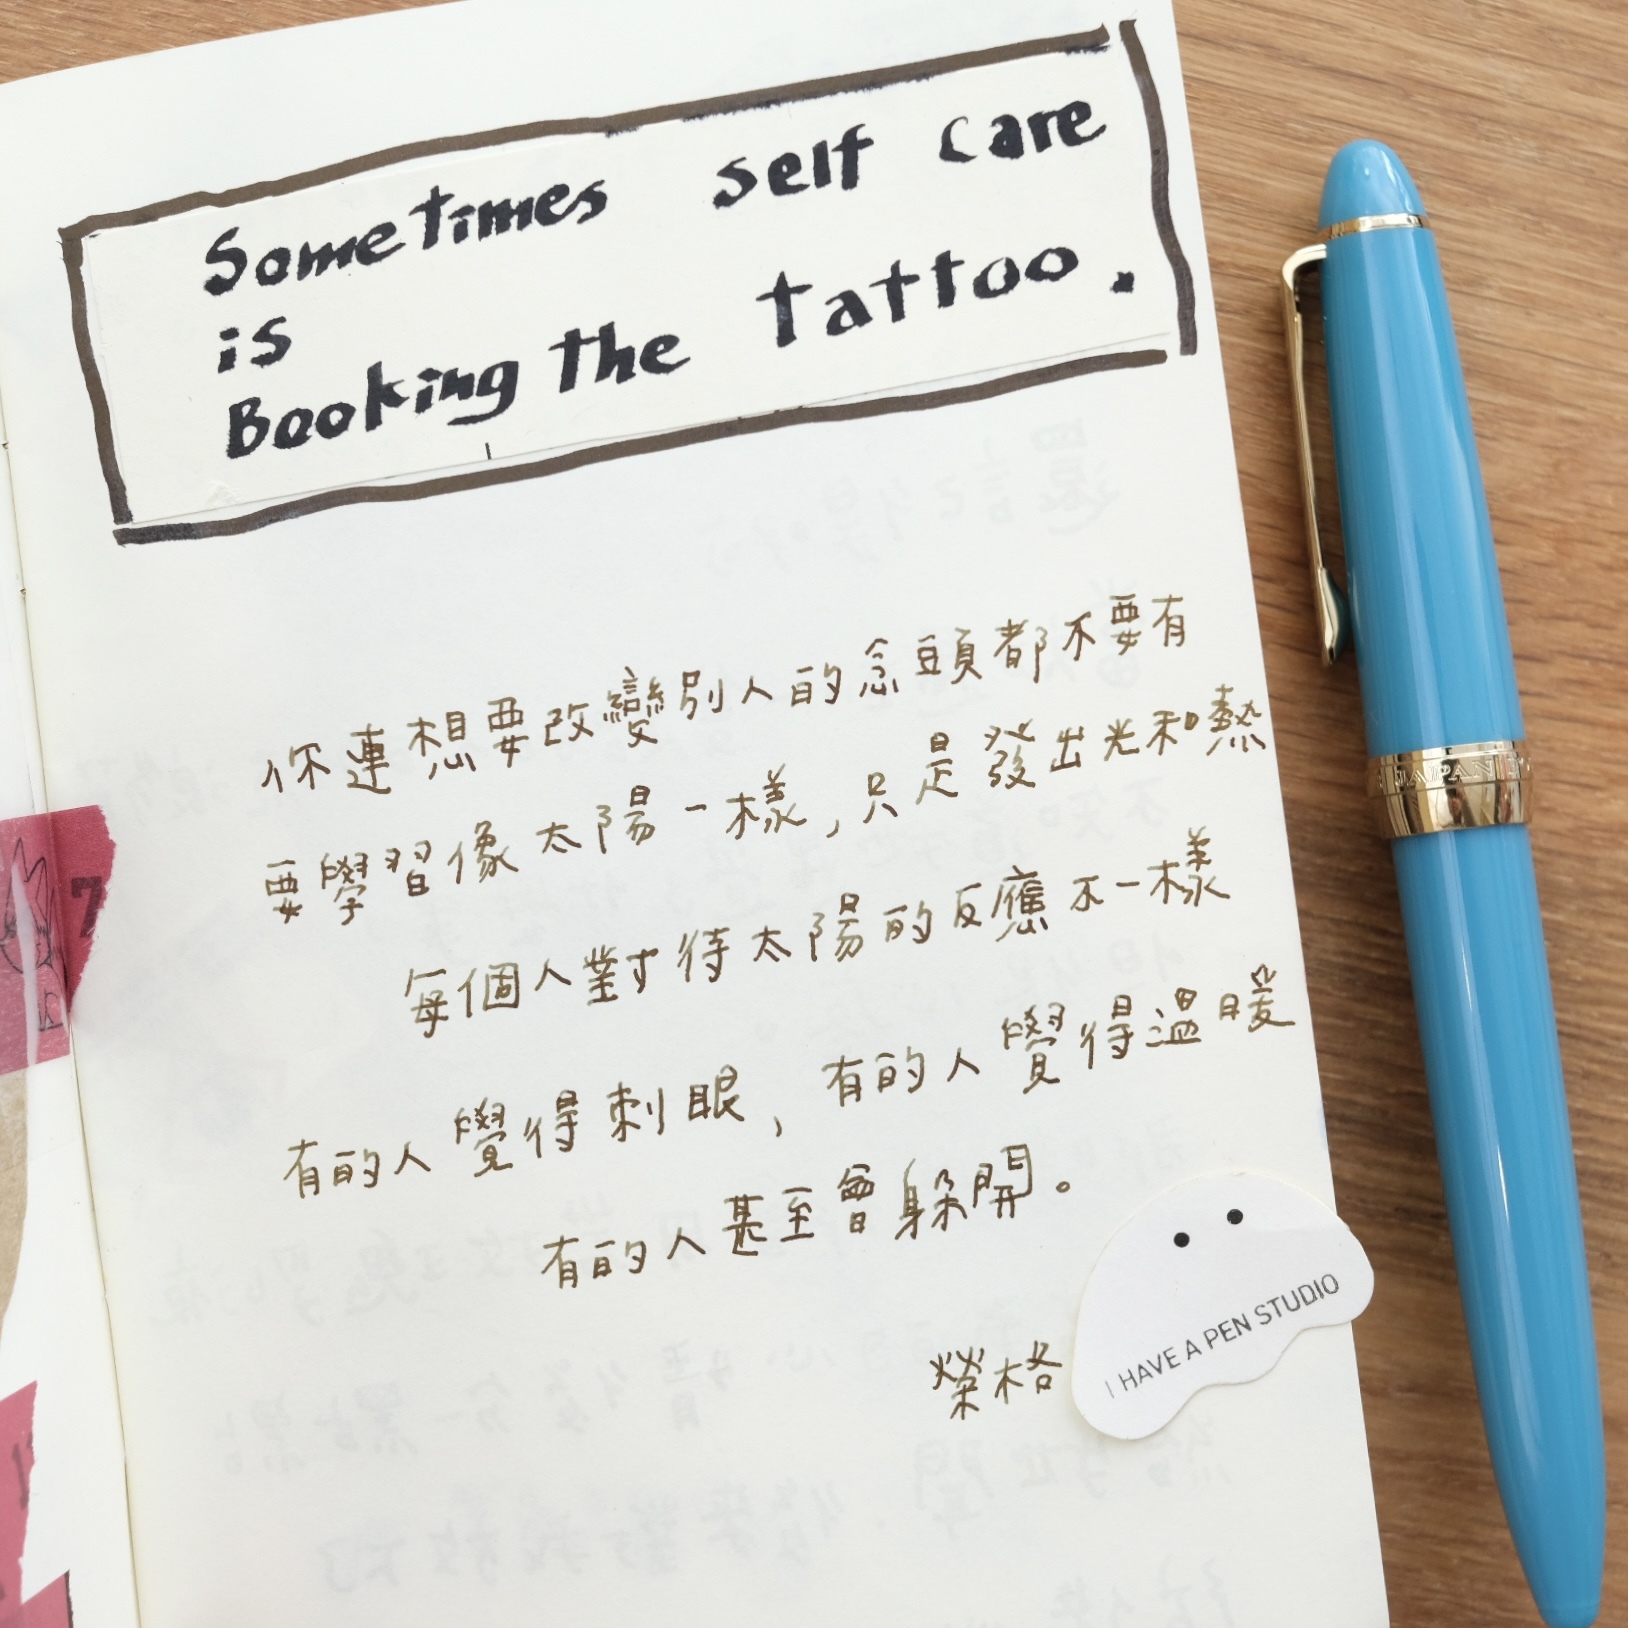 Sometimes self care
is
Booking the tattoo.
你連想要改變別人的念頭都不要有
要學習像太陽一樣，只是發出光和熱
每個人對待太陽的反應不一樣
有的人覺得刺眼，有的人覺得溫暖
有的人甚至會躲開。
榮格
I HAVE A PEN STUDIO
JAPAN
7